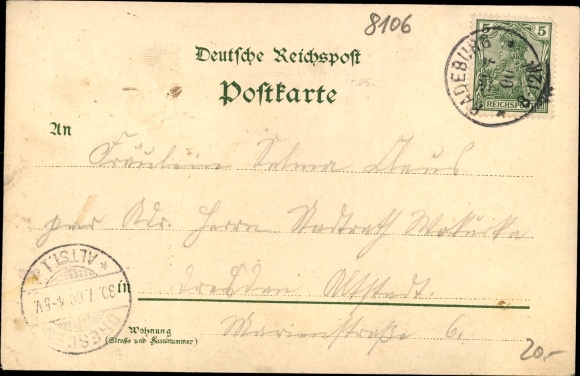 8106
Deutsche Reichspost
Postkarte
5 5
REICHSPOST
RADEBURG
An
Fräulein Selma Claus
per Adr. Herrn Stadtrath Wokurka
in Dresden Altstadt.
Marienstraße 6.
Wohnung
(Straße und Hausnummer)
DRESDEN ALTST. 1
30.7.00 4-5V.
20.-